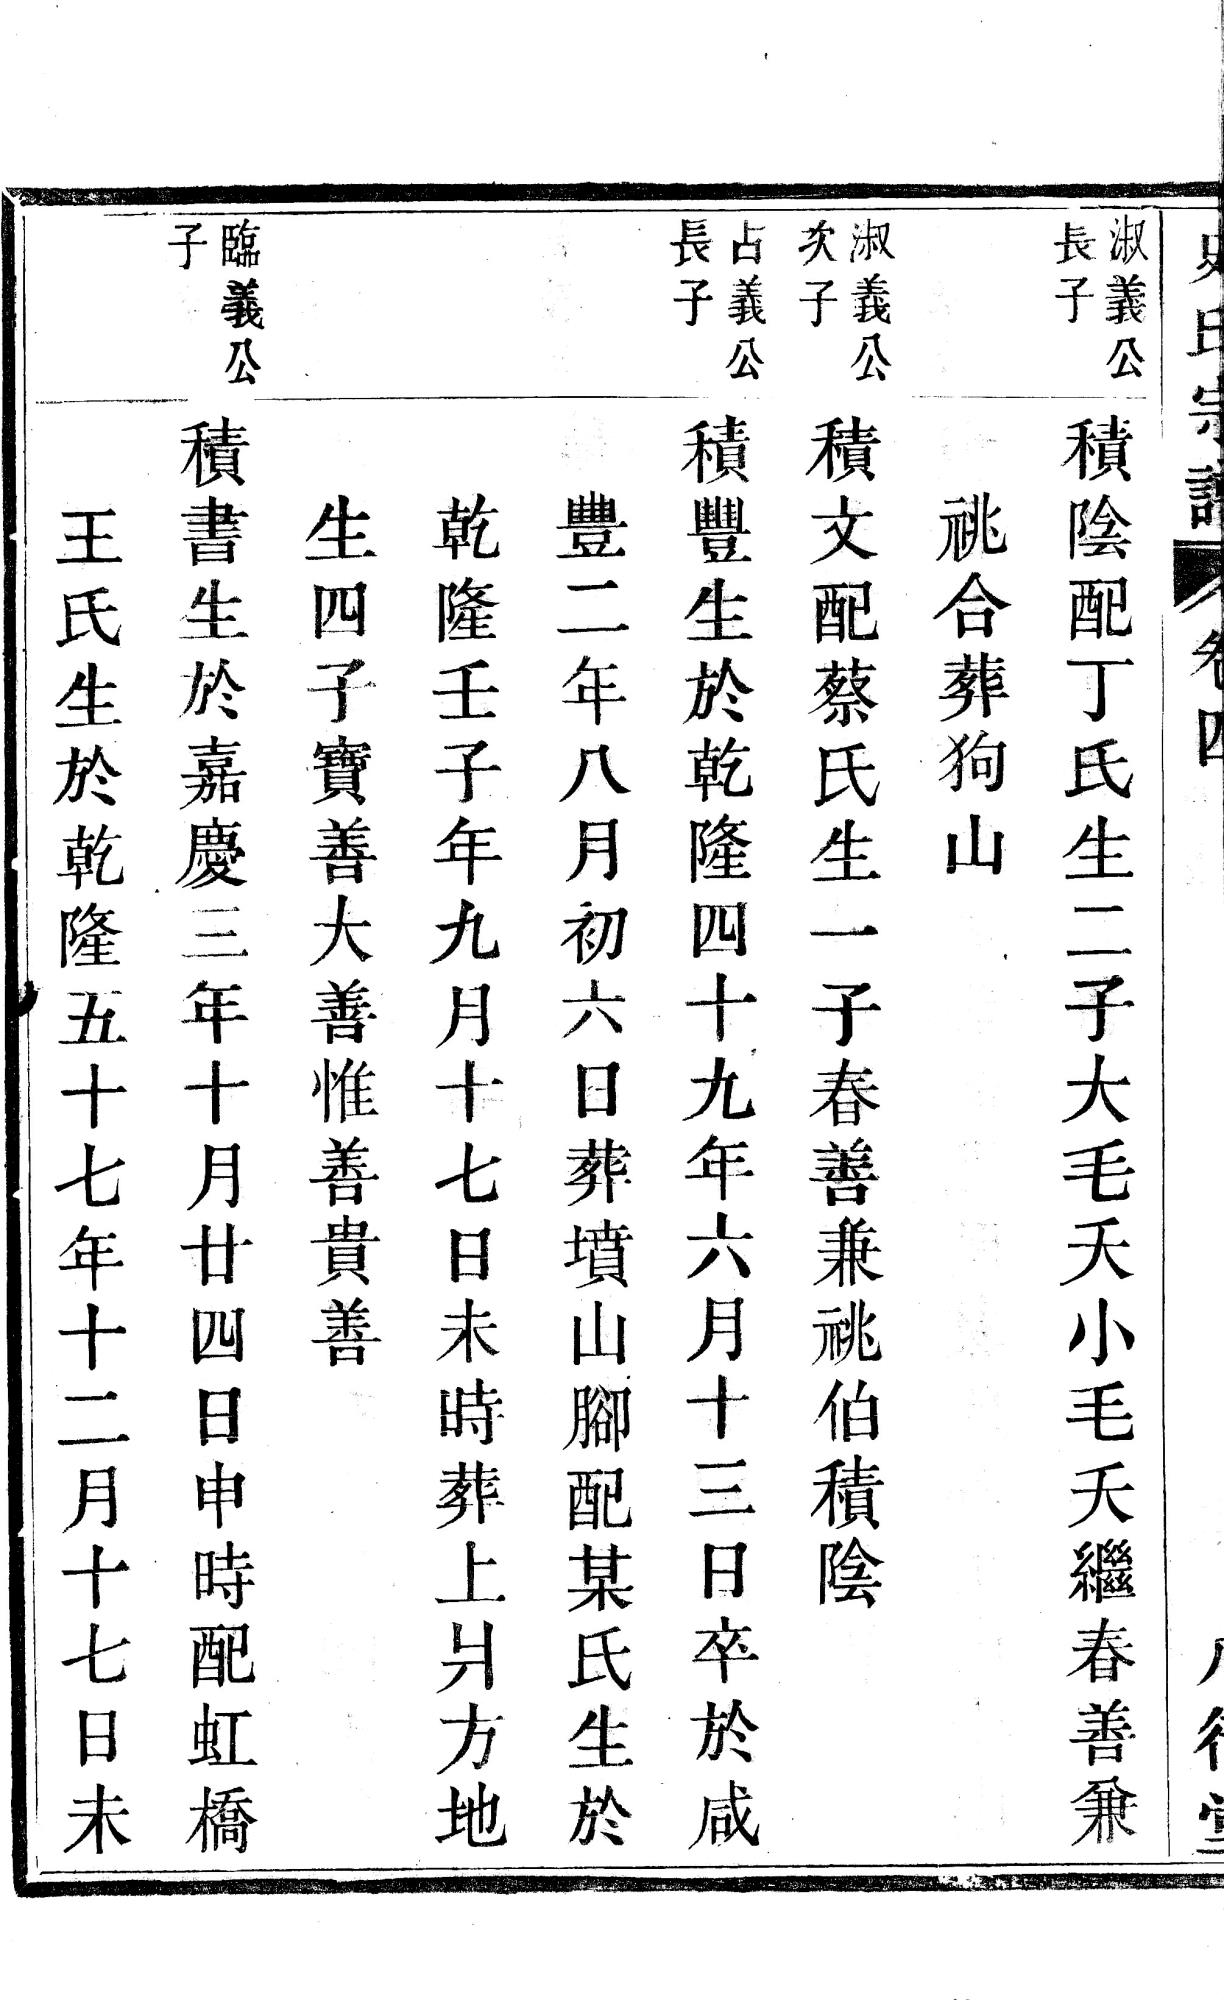 史氏宗譜 卷四 八行堂
淑義公
長子
積陰配丁氏生二子大毛夭小毛夭繼春善兼
祧合葬狗山
淑義公
次子
積文配蔡氏生一子春善兼祧伯積陰
占義公
長子
積豐生於乾隆四十九年六月十三日卒於咸
豐二年八月初六日葬墳山腳配某氏生於
乾隆壬子年九月十七日未時葬上爿方地
生四子寶善大善惟善貴善
臨義公
子
積書生於嘉慶三年十月廿四日申時配虹橋
王氏生於乾隆五十七年十二月十七日未